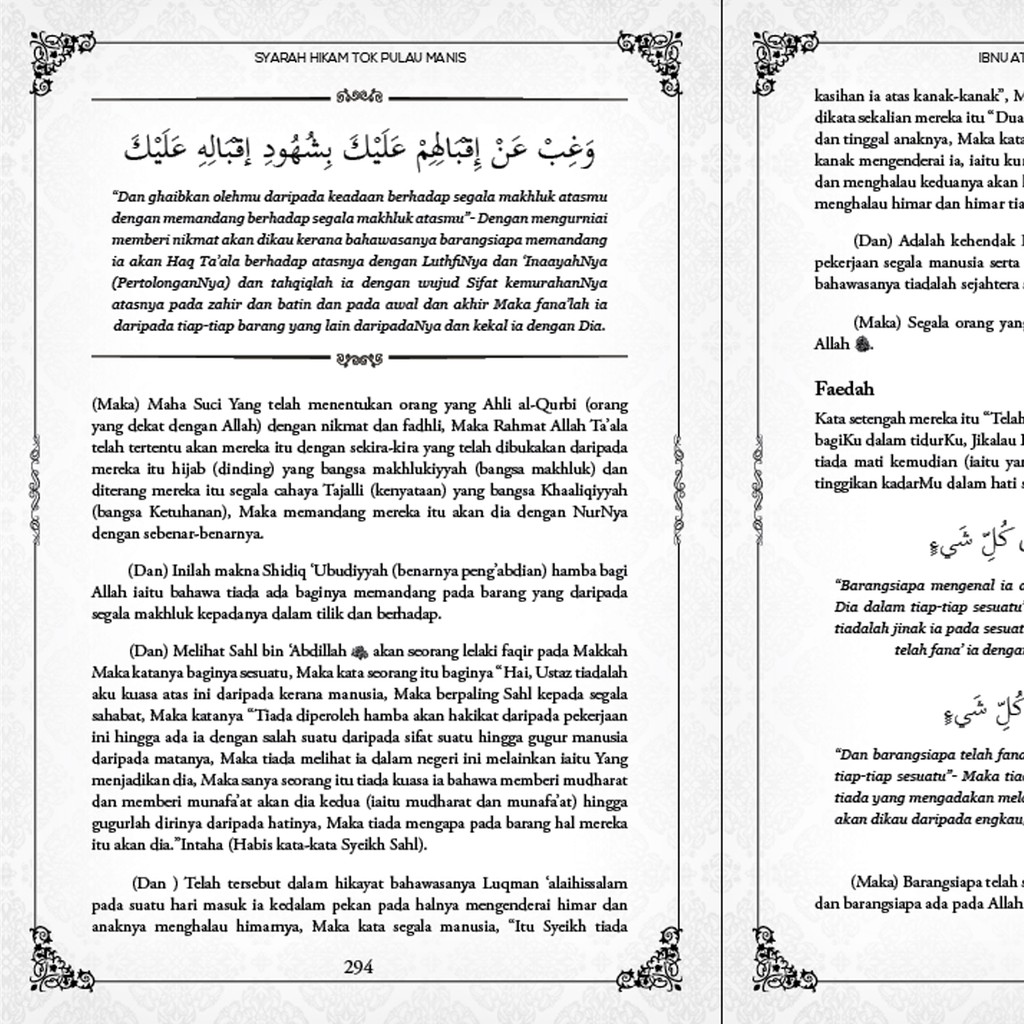 SYARAH HIKAM TOK PULAU MANIS
وَغِبْ عَنْ إِقْبَالِهِمْ عَلَيْكَ بِشُهُودِ إِقْبَالِهِ عَلَيْكَ
“Dan ghaibkan olehmu daripada keadaan berhadap segala makhluk atasmu
dengan memandang berhadap segala makhluk atasmu”- Dengan mengurniai
memberi nikmat akan dikau kerana bahawasanya barangsiapa memandang
ia akan Haq Ta’ala berhadap atasnya dengan LuthfiNya dan ‘InaayahNya
(PertolonganNya) dan tahqiqlah ia dengan wujud Sifat kemurahanNya
atasnya pada zahir dan batin dan pada awal dan akhir Maka fana’lah ia
daripada tiap-tiap barang yang lain daripadaNya dan kekal ia dengan Dia.
(Maka) Maha Suci Yang telah menentukan orang yang Ahli al-Qurbi (orang
yang dekat dengan Allah) dengan nikmat dan fadhli, Maka Rahmat Allah Ta’ala
telah tertentu akan mereka itu dengan sekira-kira yang telah dibukakan daripada
mereka itu hijab (dinding) yang bangsa makhlukiyyah (bangsa makhluk) dan
diterang mereka itu segala cahaya Tajalli (kenyataan) yang bangsa Khaaliqiyyah
(bangsa Ketuhanan), Maka memandang mereka itu akan dia dengan NurNya
dengan sebenar-benarnya.
(Dan) Inilah makna Shidiq ‘Ubudiyyah (benarnya peng’abdian) hamba bagi
Allah iaitu bahawa tiada ada baginya memandang pada barang yang daripada
segala makhluk kepadanya dalam tilik dan berhadap.
(Dan) Melihat Sahl bin ‘Abdillah akan seorang lelaki faqir pada Makkah
Maka katanya baginya sesuatu, Maka kata seorang itu baginya “Hai, Ustaz tiadalah
aku kuasa atas ini daripada kerana manusia, Maka berpaling Sahl kepada segala
sahabat, Maka katanya “Tiada diperoleh hamba akan hakikat daripada pekerjaan
ini hingga ada ia dengan salah suatu daripada sifat suatu hingga gugur manusia
daripada matanya, Maka tiada melihat ia dalam negeri ini melainkan iaitu Yang
menjadikan dia, Maka sanya seorang itu tiada kuasa ia bahawa memberi mudharat
dan memberi munafa’at akan dia kedua (iaitu mudharat dan munafa’at) hingga
gugurlah dirinya daripada hatinya, Maka tiada mengapa pada barang hal mereka
itu akan dia.”Intaha (Habis kata-kata Syeikh Sahl).
(Dan ) Telah tersebut dalam hikayat bahawasanya Luqman ‘alaihissalam
pada suatu hari masuk ia kedalam pekan pada halnya mengenderai himar dan
anaknya menghalau himarnya, Maka kata segala manusia, “Itu Syeikh tiada
294
IBNU AT
kasihan ia atas kanak-kanak”, M
dikata sekalian mereka itu “Dua
dan tinggal anaknya, Maka kata
kanak mengenderai ia, iaitu ku
dan menghalau keduanya akan
menghalau himar dan himar tia
(Dan) Adalah kehendak
pekerjaan segala manusia serta
bahawasanya tiadalah sejahtera
(Maka) Segala orang yang
Allah .
Faedah
Kata setengah mereka itu “Telah
bagiKu dalam tidurKu, Jikalau
tiada mati kemudian (iaitu ya
tinggikan kadarMu dalam hati s
كُلِّ شَيءٍ
“Barangsiapa mengenal ia a
Dia dalam tiap-tiap sesuatu”
tiadalah jinak ia pada sesuat
telah fana’ ia denga
كُلِّ شَيءٍ
“Dan barangsiapa telah fana
tiap-tiap sesuatu”- Maka tia
tiada yang mengadakan mela
akan dikau daripada engkau,
(Maka) Barangsiapa telah s
dan barangsiapa ada pada Allah